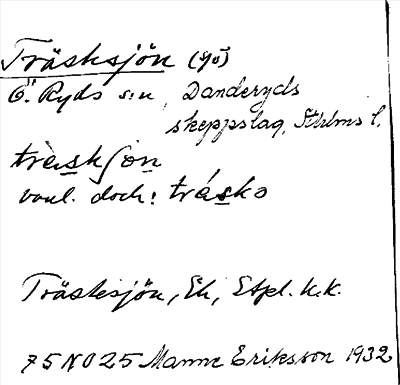 Träsksjön (sjö)
Ö. Ryds s:n, Danderyds
skeppslag, Sthlms l.
träskʃo̲n̲
vanl. dock: trásko
Träsksjön, Ek, Etpl. k.k.
75 NO 25 Manne Eriksson 1932